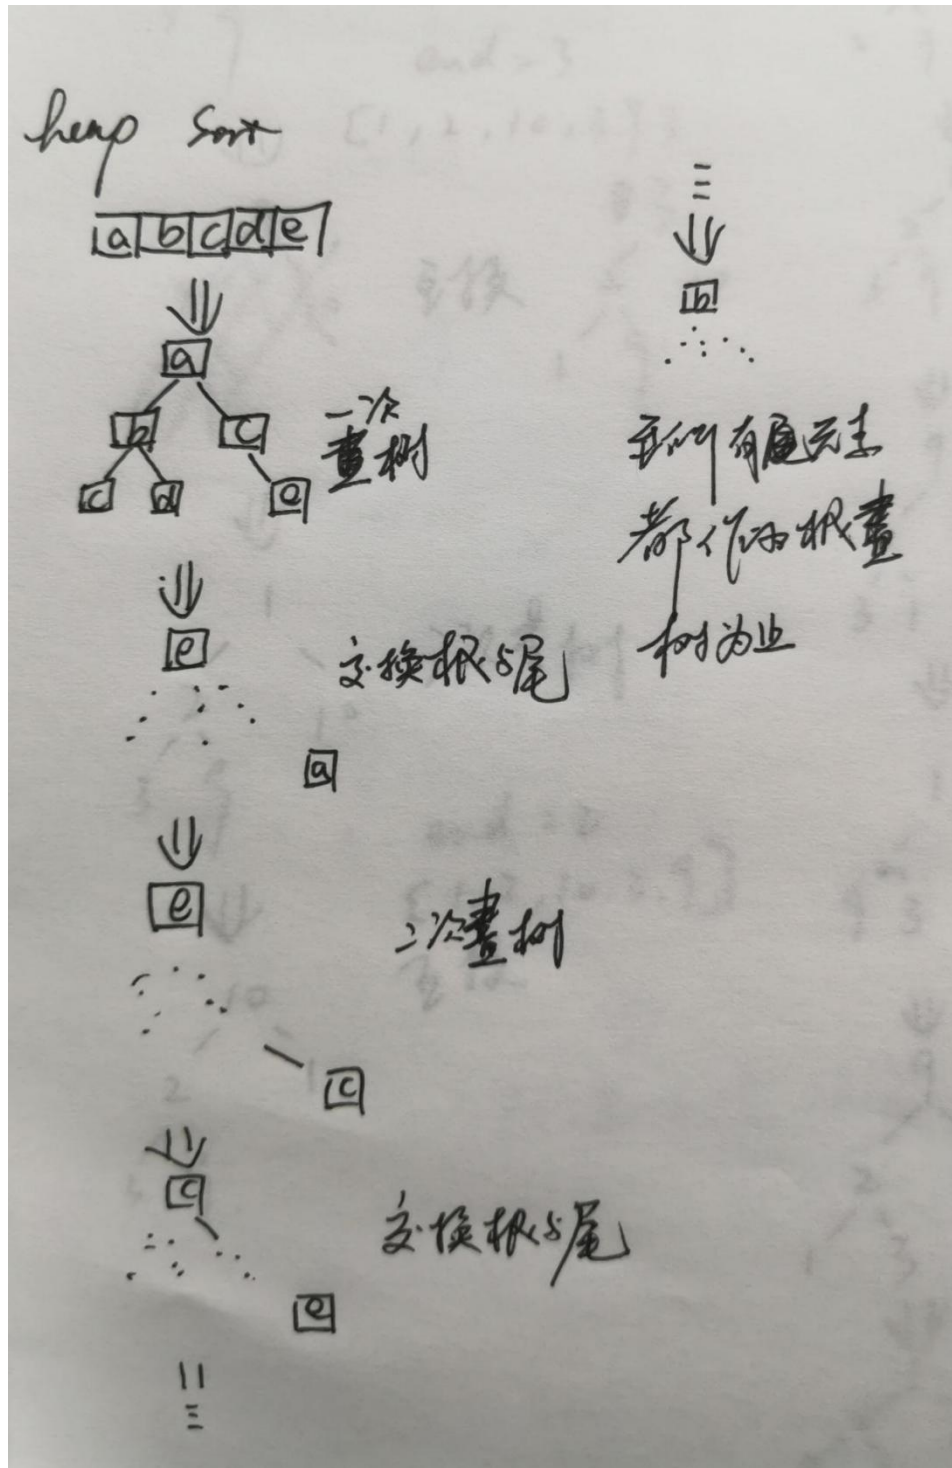 heap sort
a b c d e
a
b c
c d e
一次
畫树
e
交换根与尾
a
e
二次畫树
c
c
交换根与尾
e
b
有 元素
都作为根畫
树为止